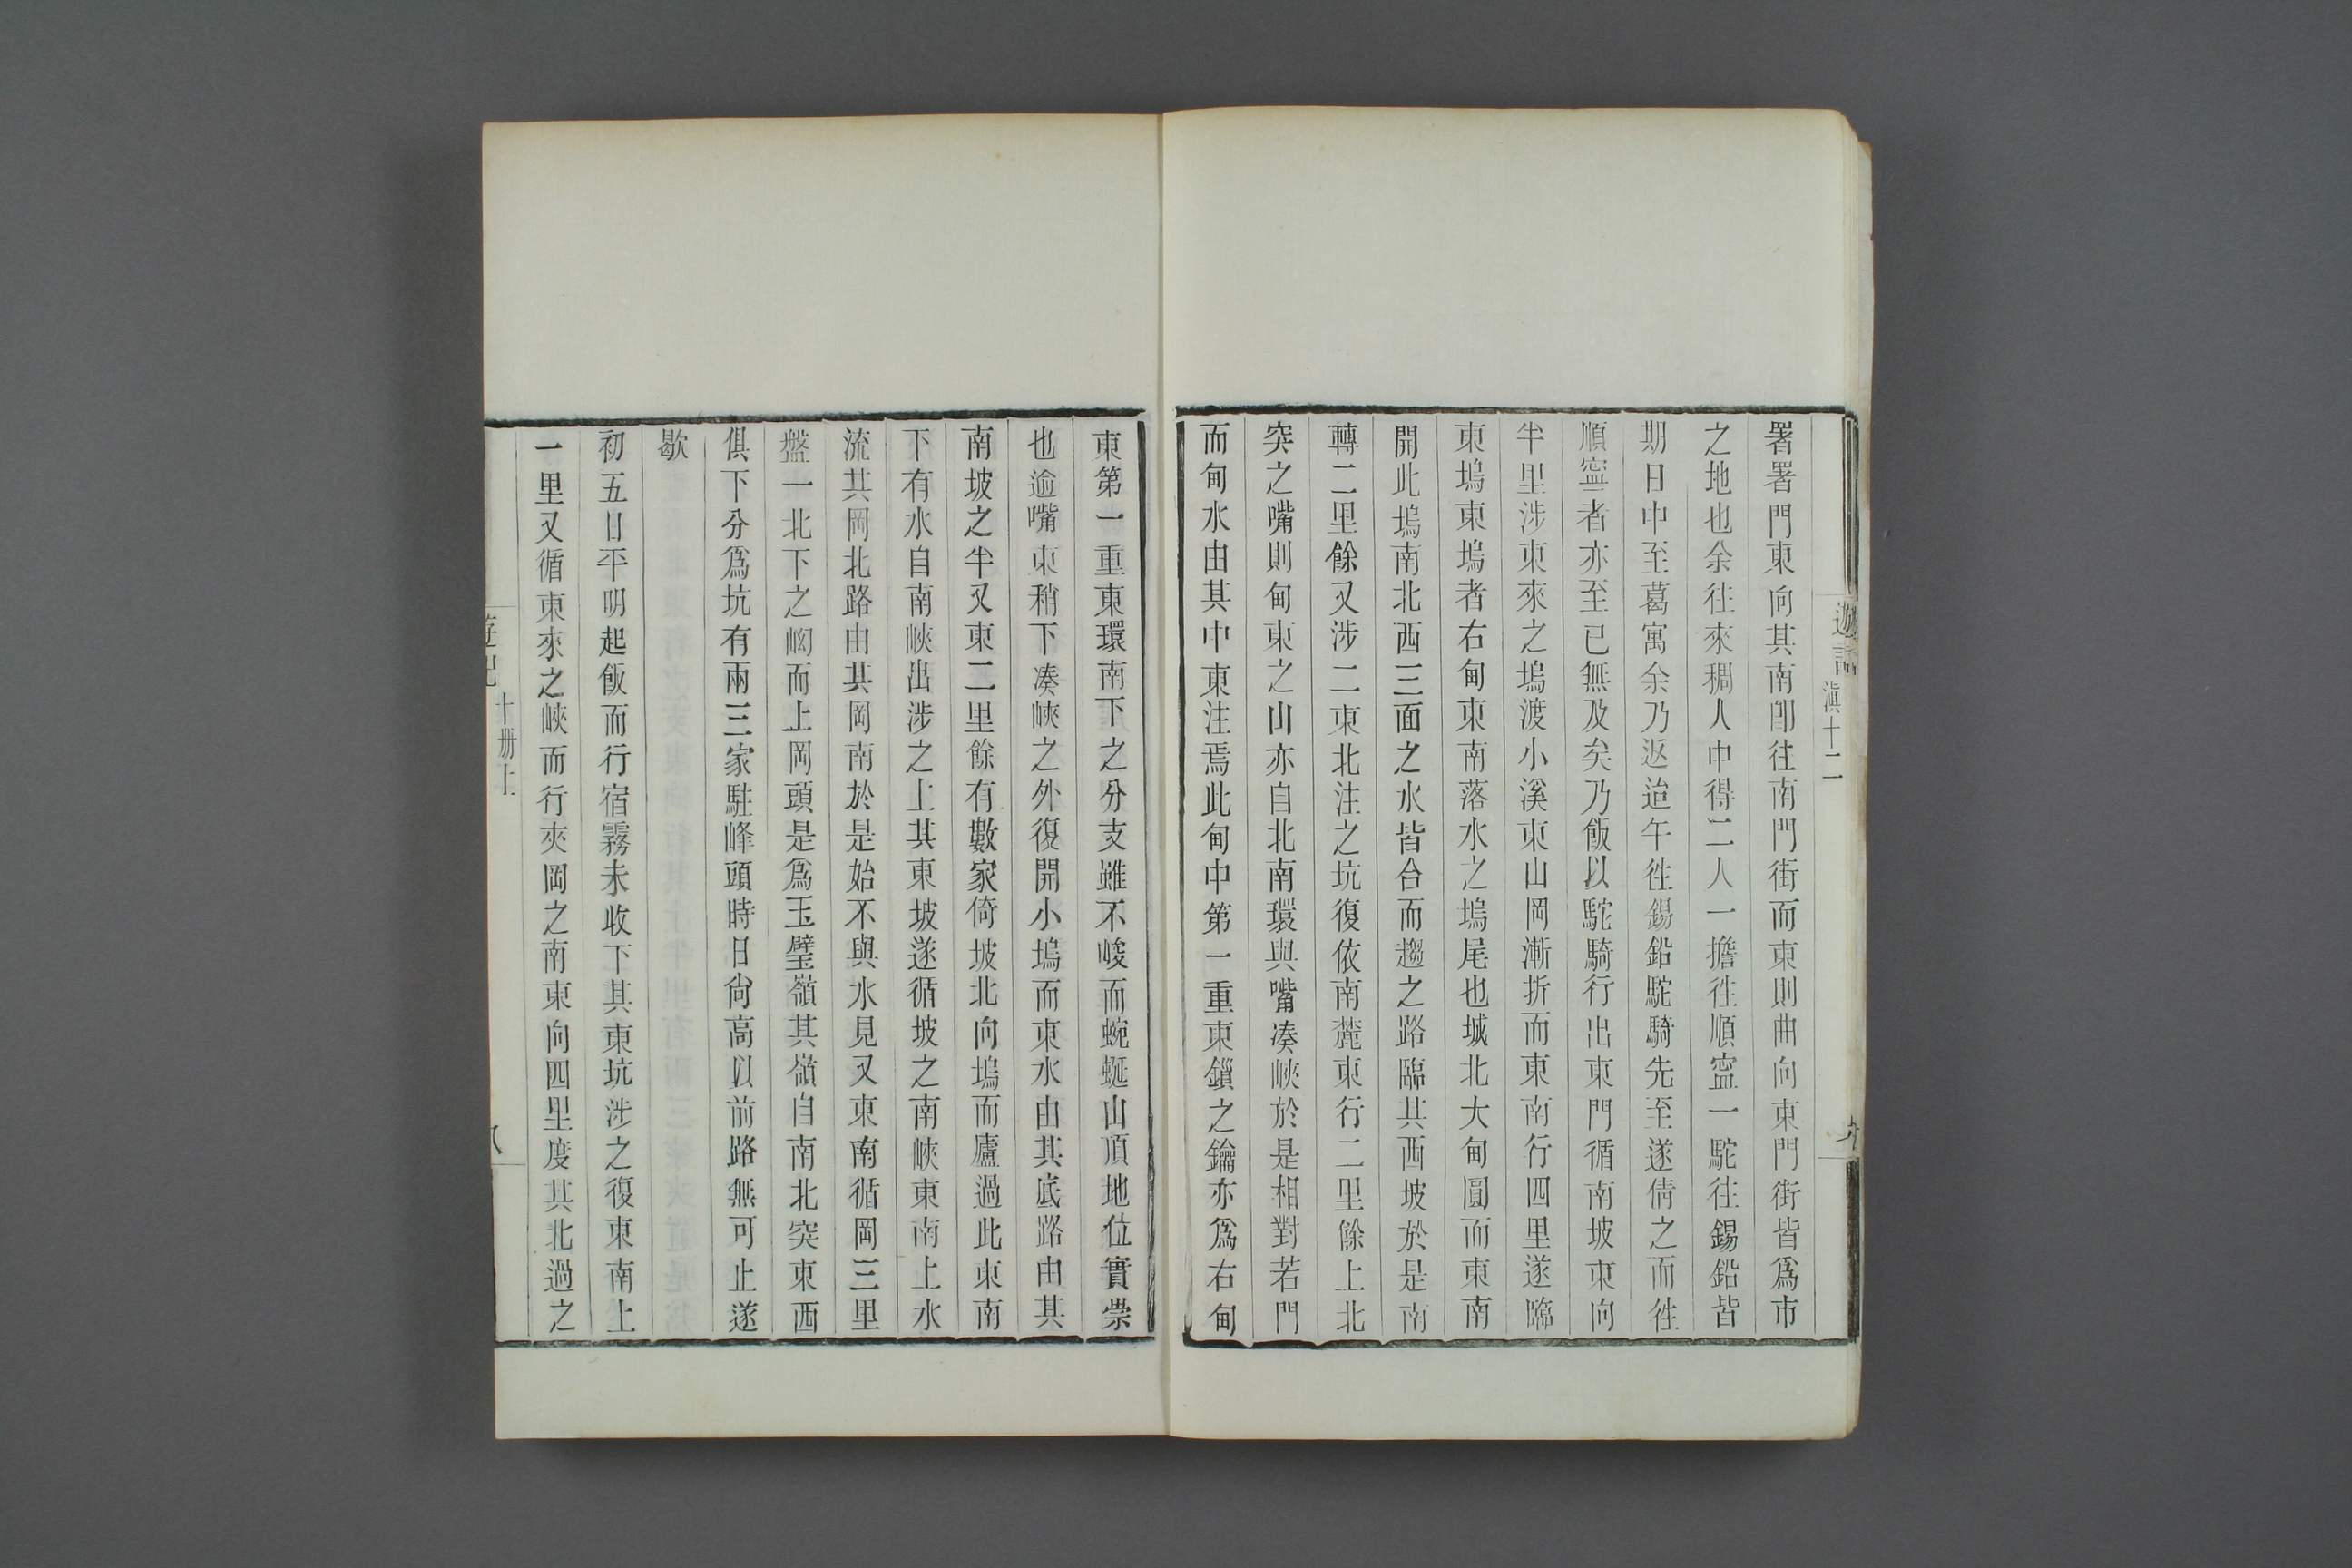 署署門東向其南卽往南門街而東則曲向東門街皆爲市
之地也余往來稠人中得二人一擔徃順寧一駝往錫鉛皆
期日中至葛寓余乃返迨午徃錫鉛駝騎先至遂倩之而徃
順寧者亦至已無及矣乃飯以駝騎行出東門循南坡東向
半里涉東來之塢渡小溪東山岡漸折而東南行四里遂臨
東塢東塢者右甸東南落水之塢尾也城北大甸圓而東南
開此塢南北西三面之水皆合而趨之路臨其西坡於是南
轉二里餘又涉二東北注之坑復依南麓東行二里餘上北
突之嘴則甸東之山亦自北南環與嘴湊峽於是相對若門
而甸水由其中東注焉此甸中第一重東鎖之鑰亦爲右甸
東第一重東環南下之分支雖不峻而蜿蜒山頂地位實崇
也逾嘴東稍下湊峽之外復開小塢而東水由其底路由其
南坡之半又東二里餘有數家倚坡北向塢而廬過此東南
下有水自南峽出涉之上其東坡遂循坡之南峽東南上水
流其岡北路由其岡南於是始不與水見又東南循岡三里
盤一北下之㘭而上岡頭是爲玉璧嶺其嶺自南北突東西
俱下分爲坑有兩三家駐峰頭時日尙高以前路無可止遂
歇
初五日平明起飯而行宿霧未收下其東坑涉之復東南上
一里又循東來之峽而行夾岡之南東向四里度其北過之
遊記
滇十二
十册上